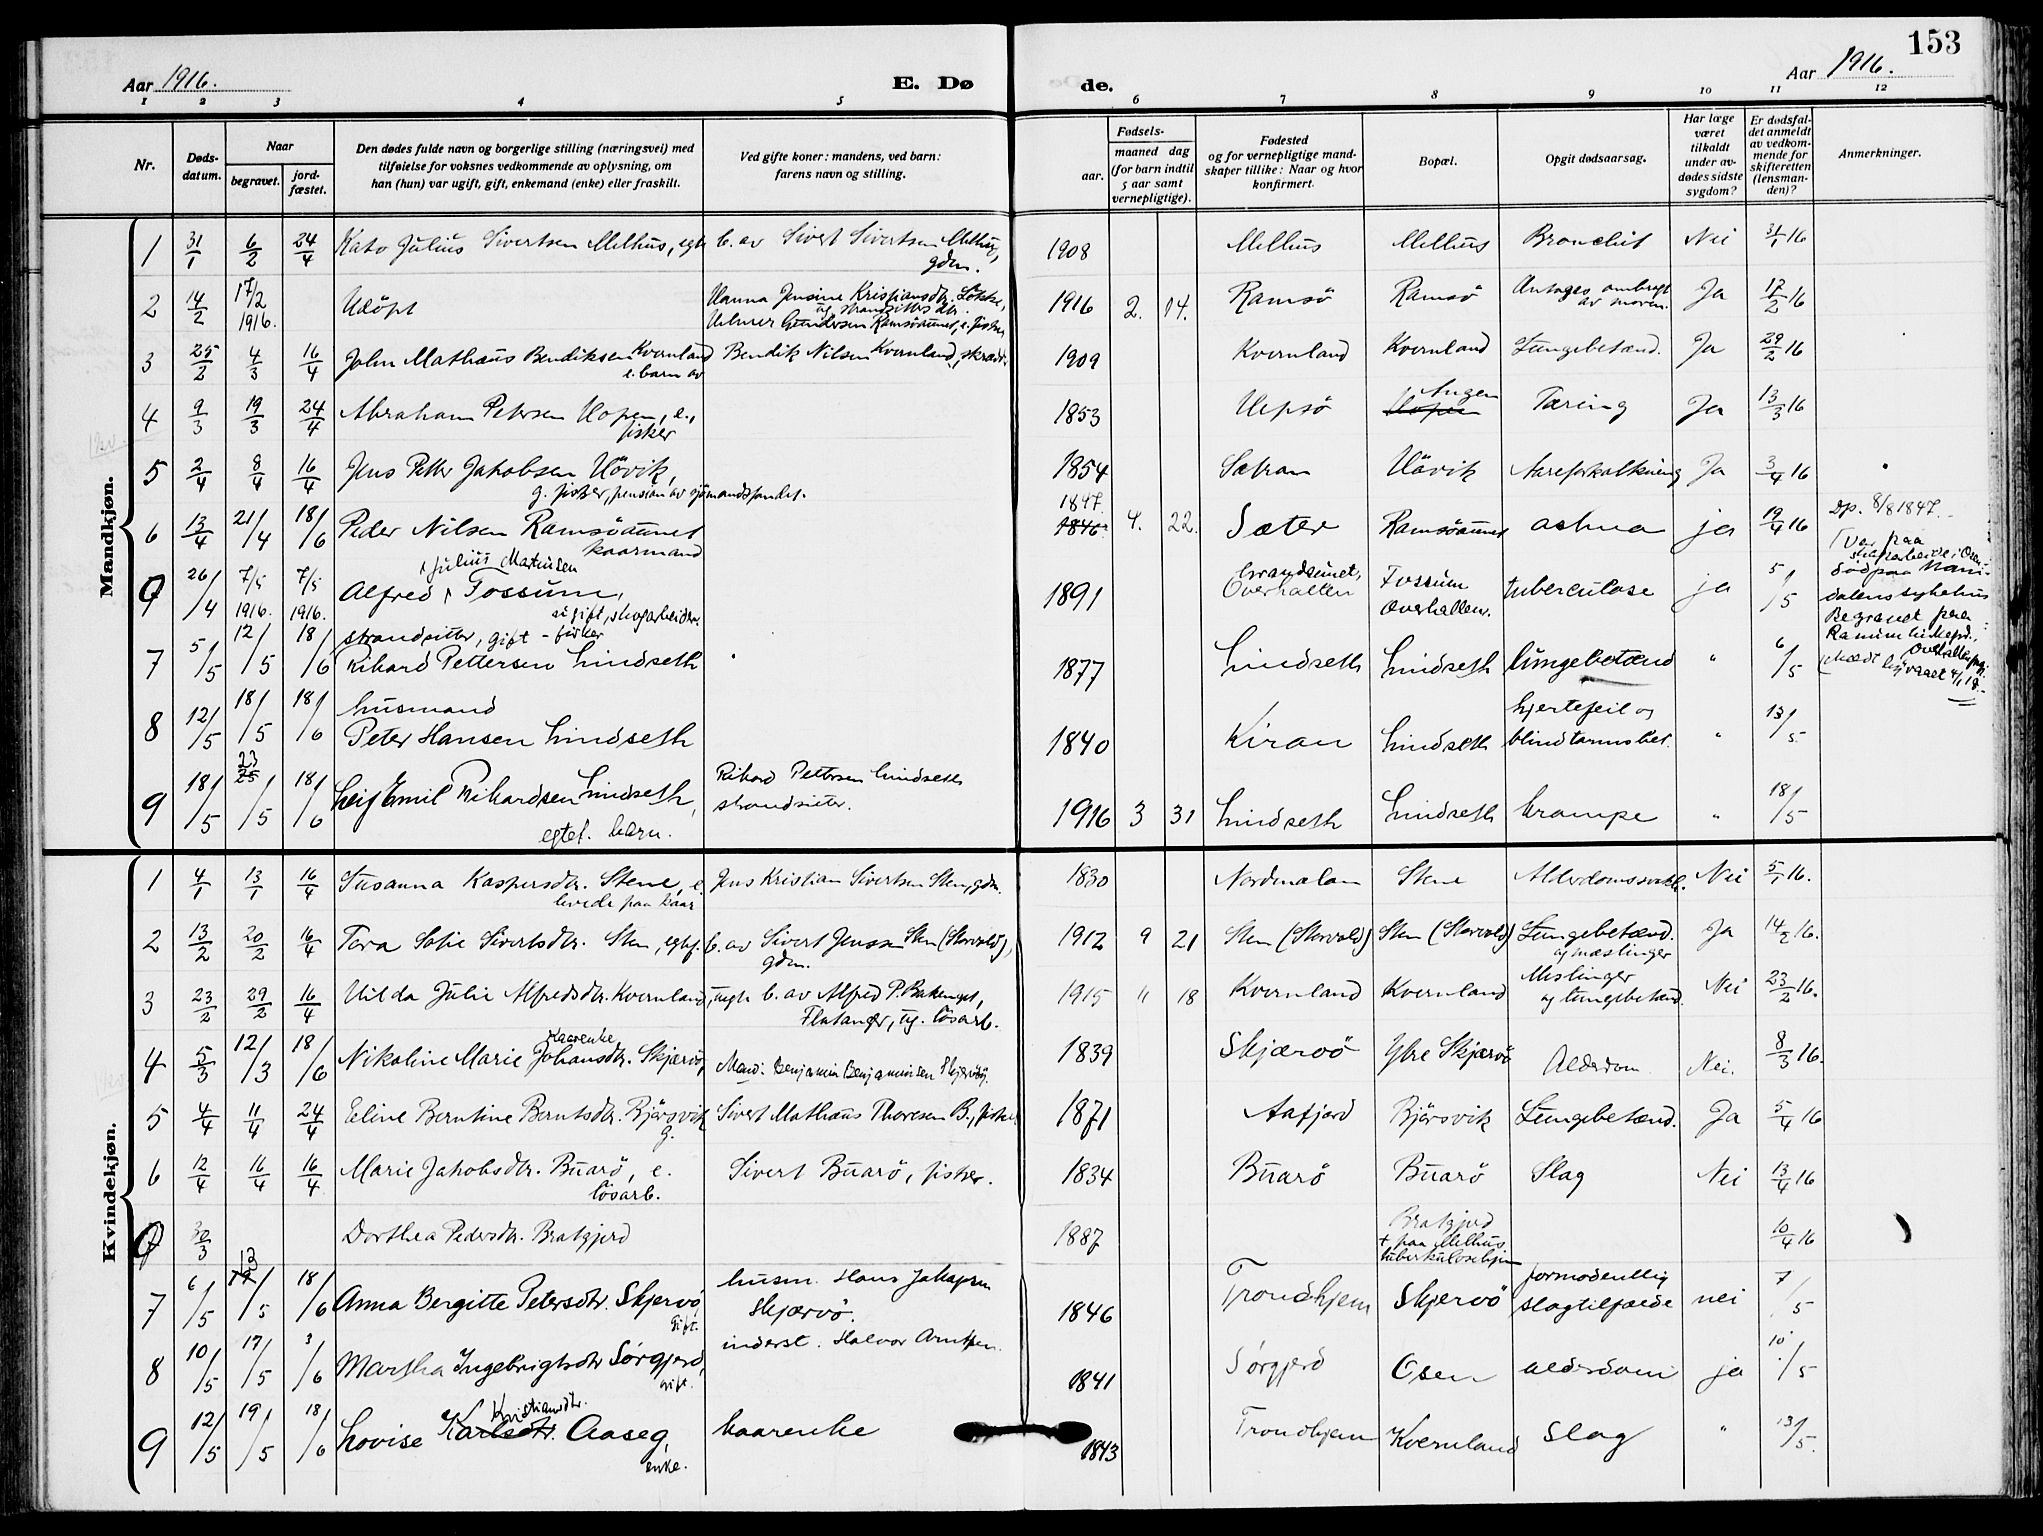 153
Aar 1916.
E. Dø
de.
Aar 1916.
1 2 3 4 5 6 7 8 9 10 11 12
Nr.
Døds-
datum.
Naar
begravet.
jord-
fæstet.
Den dødes fulde navn og borgerlige stilling (næringsvei) med
tilføielse for voksnes vedkommende av oplysning, om
han (hun) var ugift, gift, enkemand (enke) eller fraskilt.
Ved gifte koner: mandens, ved barn:
farens navn og stilling.
Fødsels-
aar.
maaned dag
(for barn indtil
5 aar samt
vernepligtige).
Fødested
og for vernepligtige mand-
skaper tillike: Naar og hvor
konfirmert.
Bopæl.
Opgit dødsaarsag.
Har læge
været
tilkaldt
under av-
dødes sidste
sygdom?
Er dødsfal-
det anmeldt
av vedkom-
mende for
skifteretten
(lensman-
den)?
Anmerkninger.
Mandkjøn.
1 31/1 6/2 24/4 Kato Julius Sivertsen Melhus, egte b. av Sivert Sivertsen Melhus, 1908 Melhus Melhus Bronchit Nei 31/1 16
gdm.
2 14/2 17/2 1916. Udöpt Hanna Jensine Kristiansdtr. Løkke, 1916 2. 14. Ramsö Ramsö Antages ombragt av moren. Ja 17/2 16
ug. strandsitters dtr.
Helmer Gundersen Ramsöaunet, e. fisker
3 25/2 4/3 16/4 John Mathæus Bendiksen Kvernland Bendik Nilsen Kvernland, skrædr. 1909 Kvernland Kvernland Lungebetænd. Ja 29/2 16
e. barn av
4 9/3 19/3 24/4 Abraham Petersen Hopen, e., 1853 Hepsö Hopen Angen Tæring Ja 13/3 16
fisker
5 2/4 8/4 16/4 Jens Petter Jakobsen Hövik, 1854 Sætran Hövik Aareforkalkning Ja 3/4 16
g. fisker, pension av sjömandsfondet.
6 13/4 21/4 18/6 Peder Nilsen Ramsöaunet 1847. 1846. 4. 22. Sæter Ramsöaunet astma ja 19/4 16 Dp. 8/8 1847.
kaarmand
0 26/4 7/5 1916. 7/5 1916. Alfred Julius Martinsen Fossum, 1891 Overhallen Fossum Overhallen. tuberculose ja 5/5 Var paa
ugift, skogarbeider.
död paa Nam-
dalens sykehus
Begravet paa
Ranum kirkegd.,
7 5/5 12/5 18/6 strandsitter, gift - fisker
Rikard Pettersen Lindseth 1877 Lindseth Lindseth lungebetænd " 6/5
8 12/5 18/5 18/6 husmand
Peter Hansen Lindseth 1840 Kiran Lindseth hjertefeil og
blindtarmsbet. " 13/5
9 18/5 23/5 18/6 Leif Emil Rikardsen Lindseth, Rikard Pettersen Lindseth 1916 3 31 Lindseth Lindseth krampe " 18/5
strandsitter.
egtef. barn.
Kvindekjøn.
1 4/1 13/1 16/4 Susanna Kaspersdtr. Stene, e. Jens Kristian Sivertsen Sten, gdm. 1830 Nordmalen Stene Alderdomssvakh. Nei 5/1 16.
levede paa kaar
2 13/2 20/2 16/4 Tora Sofie Sivertsdtr. Sten, egtef. b. av Sivert Jenssen Sten (Storvold), 1912 9 21 Sten (Storvold) Sten (Storvold) Lungebetænd. Ja 14/2 16.
gdm. og mæslinger
3 23/2 29/2 16/4 Hilda Julie Alfredsdtr. Kvernland, uegte b. av Alfred P. Bakenget, 1915 11 18 Kvernland Kvernland Meslinger Nei 23/2 16.
Flatanger, ug. lösarb. og lungebetænd.
4 5/3 12/3 18/6 Nikoline Marie Johansdtr. Skjærvö, Mand: Benjamin Benjaminsen Skjervöy. 1839 Skjærvö Ytre Skjærvö Alderdom Nei. 8/3 16.
kaarenke
5 4/4 11/4 24/4 Eline Berntine Berntsdtr. Bjørsvik Sivert Mathæus Thoresen B., fisker 1871 Aafjord Bjørsvik Lungebetænd. Ja 5/4 16
g.
6 12/4 16/4 16/4 Marie Jakobsdtr. Buarö, e. Sivert Buarö, fisker. 1834 Buarö Buarö Slag Nei 13/4 16
lösarb.
0 30/3 Dorthea Pedersdtr. Bratgjerd 1887 Bratgjerd 10/4 16
+ paa Melhus
tuberkulosehjem
7 6/5 13/5 18/6 Anna Bergitte Petersdtr. Skjervö husm. Hans Jakopsen 1846 Trondhjem Skjervö formodentlig
slagtilfælde nei 7/5
gift. Skjærvö.
8 10/5 17/5 3/6 Martha Ingebrigtsdtr Sørgjerd, inderst. Halvor Arntsen. 1841 Sørgjerd Osen alderdom ja 10/5
gift.
9 12/5 19/5 18/6 Lovise Karlsdtr. Kristiansdtr. Aaseg, kaarenke 1843 Trondhjem Kvernland Slag " 13/5.
enke.